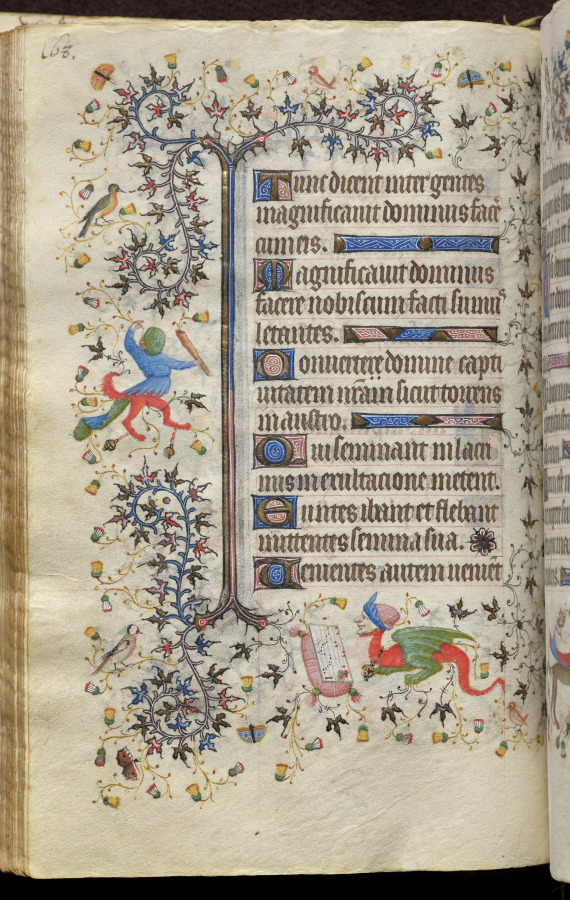 163.
Tunc dicent inter gentes
magnificavit dominus face
cum eis.
Magnificavit dominus
facere nobiscum facti sumus
letantes.
Convertere domine capti
vitatem nr̄am sicut torrens
in austro.
Qui seminant in lacri
mis in exultacione metent.
Euntes ibant et flebant
mittentes semina sua.
Venientes autem venient